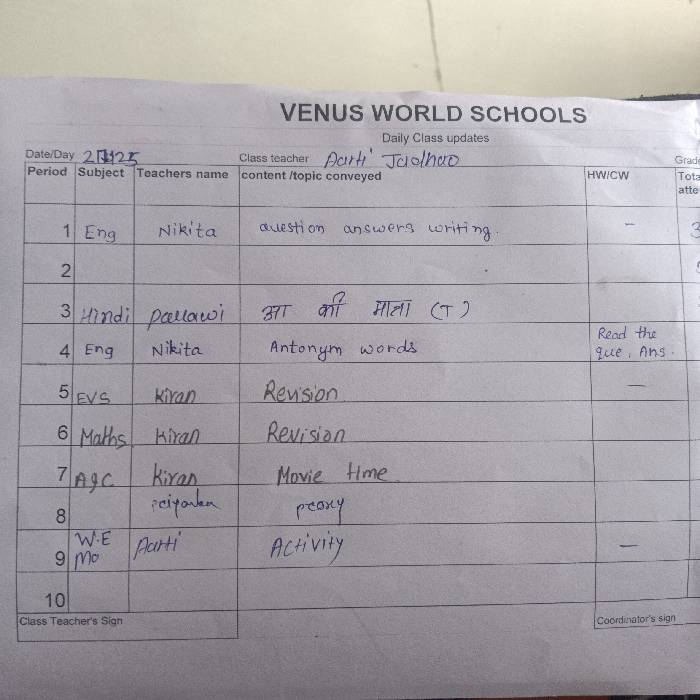 VENUS WORLD SCHOOLS
Daily Class updates
Date/Day Class teacher Aarti Jadhao Grade
Period Subject Teachers name content /topic conveyed HW/CW Tota
atte
1 Eng Nikita question answers writing. - 3
2
3 Hindi pallawi आ की मात्रा (T)
4 Eng Nikita Antonym words Read the
que, Ans.
5 EVS Kiran Revision -
6 Maths Kiran Revision
7 Kiran Movie time
8 priyanka proxy
9 W.E Mo Aarti Activity -
10
Class Teacher's Sign Coordinator's sign